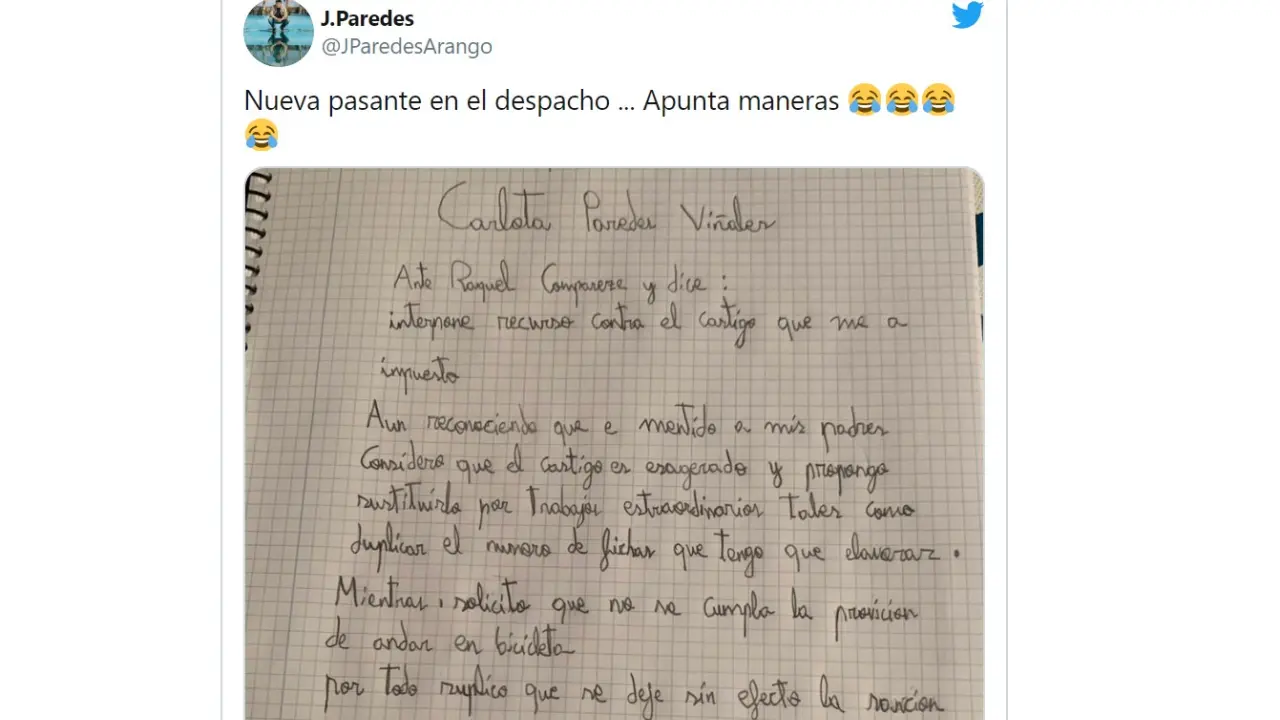 J.Paredes
@JParedesArango
Nueva pasante en el despacho ... Apunta maneras 😂😂😂
😂
Carlota Paredes Viñoles
Ante Raquel Comparece y dice :
interpone recurso contra el castigo que me a
impuesto
Aun reconociendo que e mentido a mis padres
Considero que el castigo es esagerado y propongo
sustituirlo por trabajos estraordinarios tales como
duplicar el numero de fichas que tengo que elavorar .
Mientras, solicito que no se cumpla la provicion
de andar en bicicleta
por todo suplico que se deje sin efecto la sancion